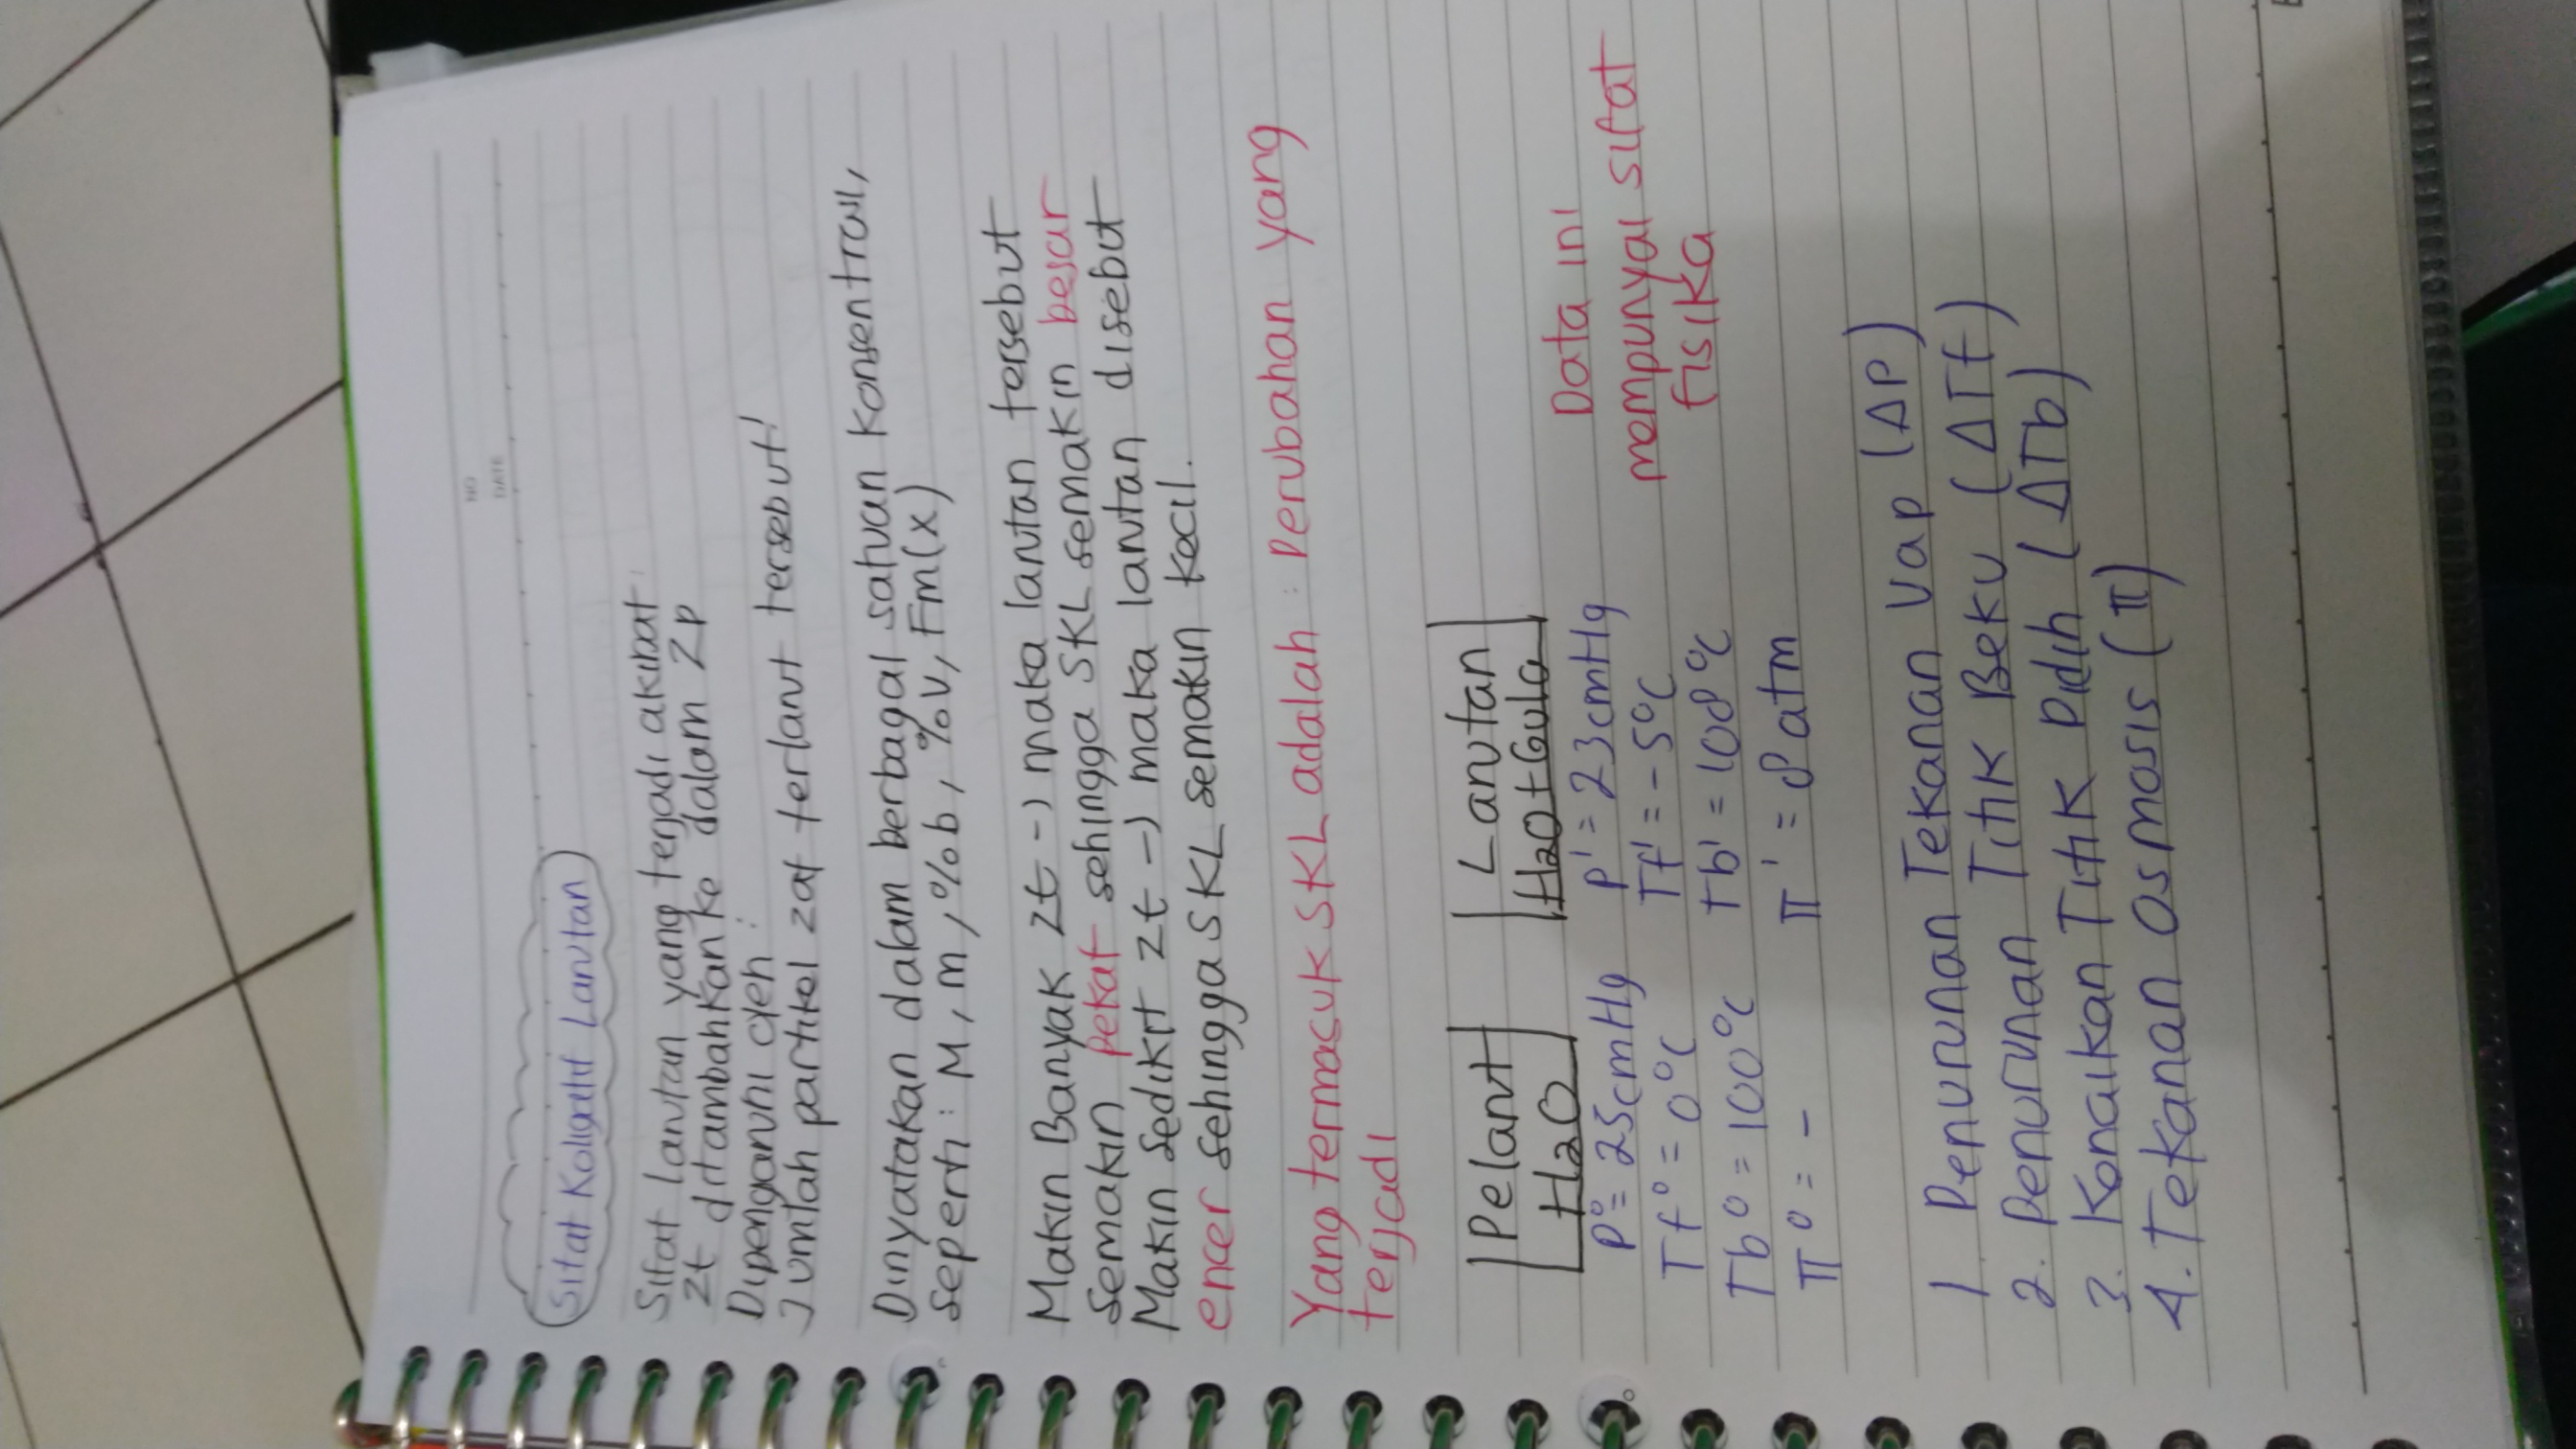 NO
DATE
Sifat Koligatif Larutan
Sifat larutan yang terjadi akibat
Zt ditambahkan ke dalam Zp
Dipengaruhi oleh :
Jumlah partikel zat terlarut tersebut!
Dinyatakan dalam berbagai satuan konsentrasi,
seperti : M, m, %b, %V, Fm(x)
Makin Banyak zt -) maka larutan tersebut
semakin pekat sehingga SKL semakin besar
Makin Sedikit zt -) maka larutan disebut
encer sehingga SKL semakin kecil.
Yang termasuk SKL adalah : perubahan yang
terjadi
Pelarut Larutan
H2O H2O+Gula
P° = 25cmHg P' = 23cmHg
Tf° = 0°C Tf' = -5°C
Tb° = 100°C Tb' = 108°C
π° = - π' = 8 atm
Data ini
mempunyai sifat
fisika
1. Penurunan Tekanan Uap (ΔP)
2. Penurunan Titik Beku (ΔTf)
3. Kenaikan Titik Didih (ΔTb)
4. Tekanan Osmosis (π)